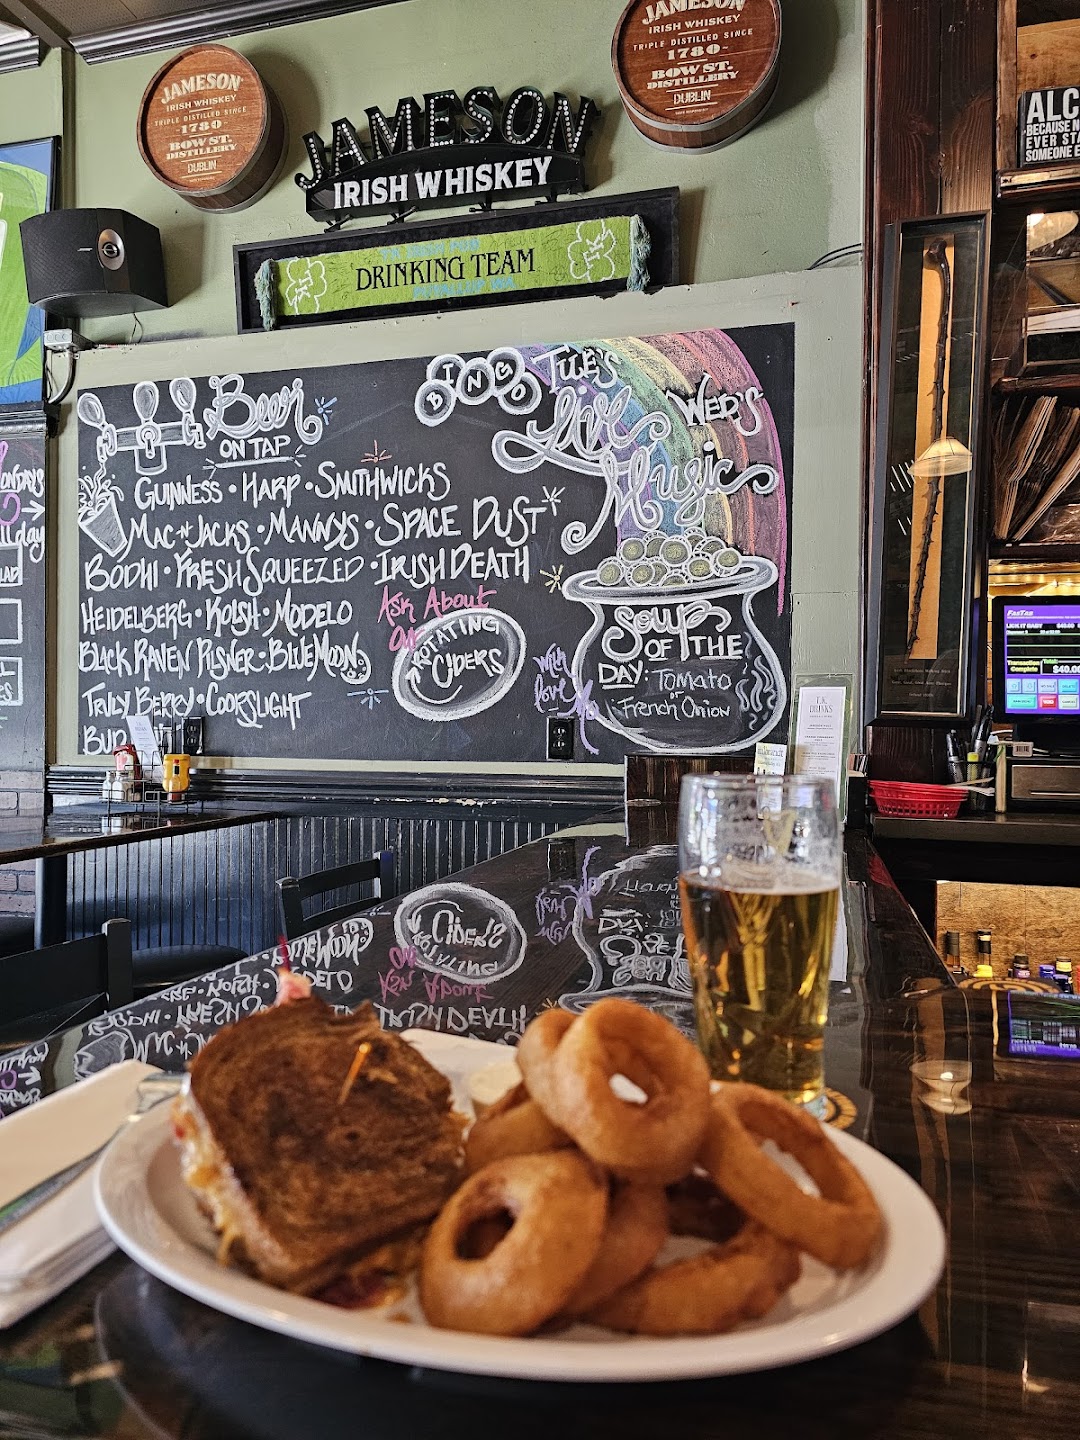 JAMESON
IRISH WHISKEY
TRIPLE DISTILLED SINCE
1780
BOW ST.
DISTILLERY
DUBLIN
JAMESON
IRISH WHISKEY
JAMESON
IRISH WHISKEY
TRIPLE DISTILLED SINCE
-1780-
BOW ST.
DISTILLERY
DUBLIN
DRINKING TEAM
ALC
BECAUSE N
EVER STA
SOMEONE E
Beer
ON TAP
GUINNESS • HARP • SMITHWICKS
MAC & JACKS • MANNYS • SPACE DUST
BODHI • FRESH SQUEEZED • IRISH DEATH
HEIDELBERG • KOLSH • MODELO
BLACK RAVEN PILSNER • BLUE MOON
TRULY BERRY • COORSLIGHT
BUD
ASK ABOUT
OUR
ROTATING
CIDERS
BINGO TUE'S
Live
Music
WED'S
Soup
OF THE
DAY: TOMATO
or
French Onion
with
love
ONDAYS
ll day
FasTab
Transaction
Complete
Total:
$40.00